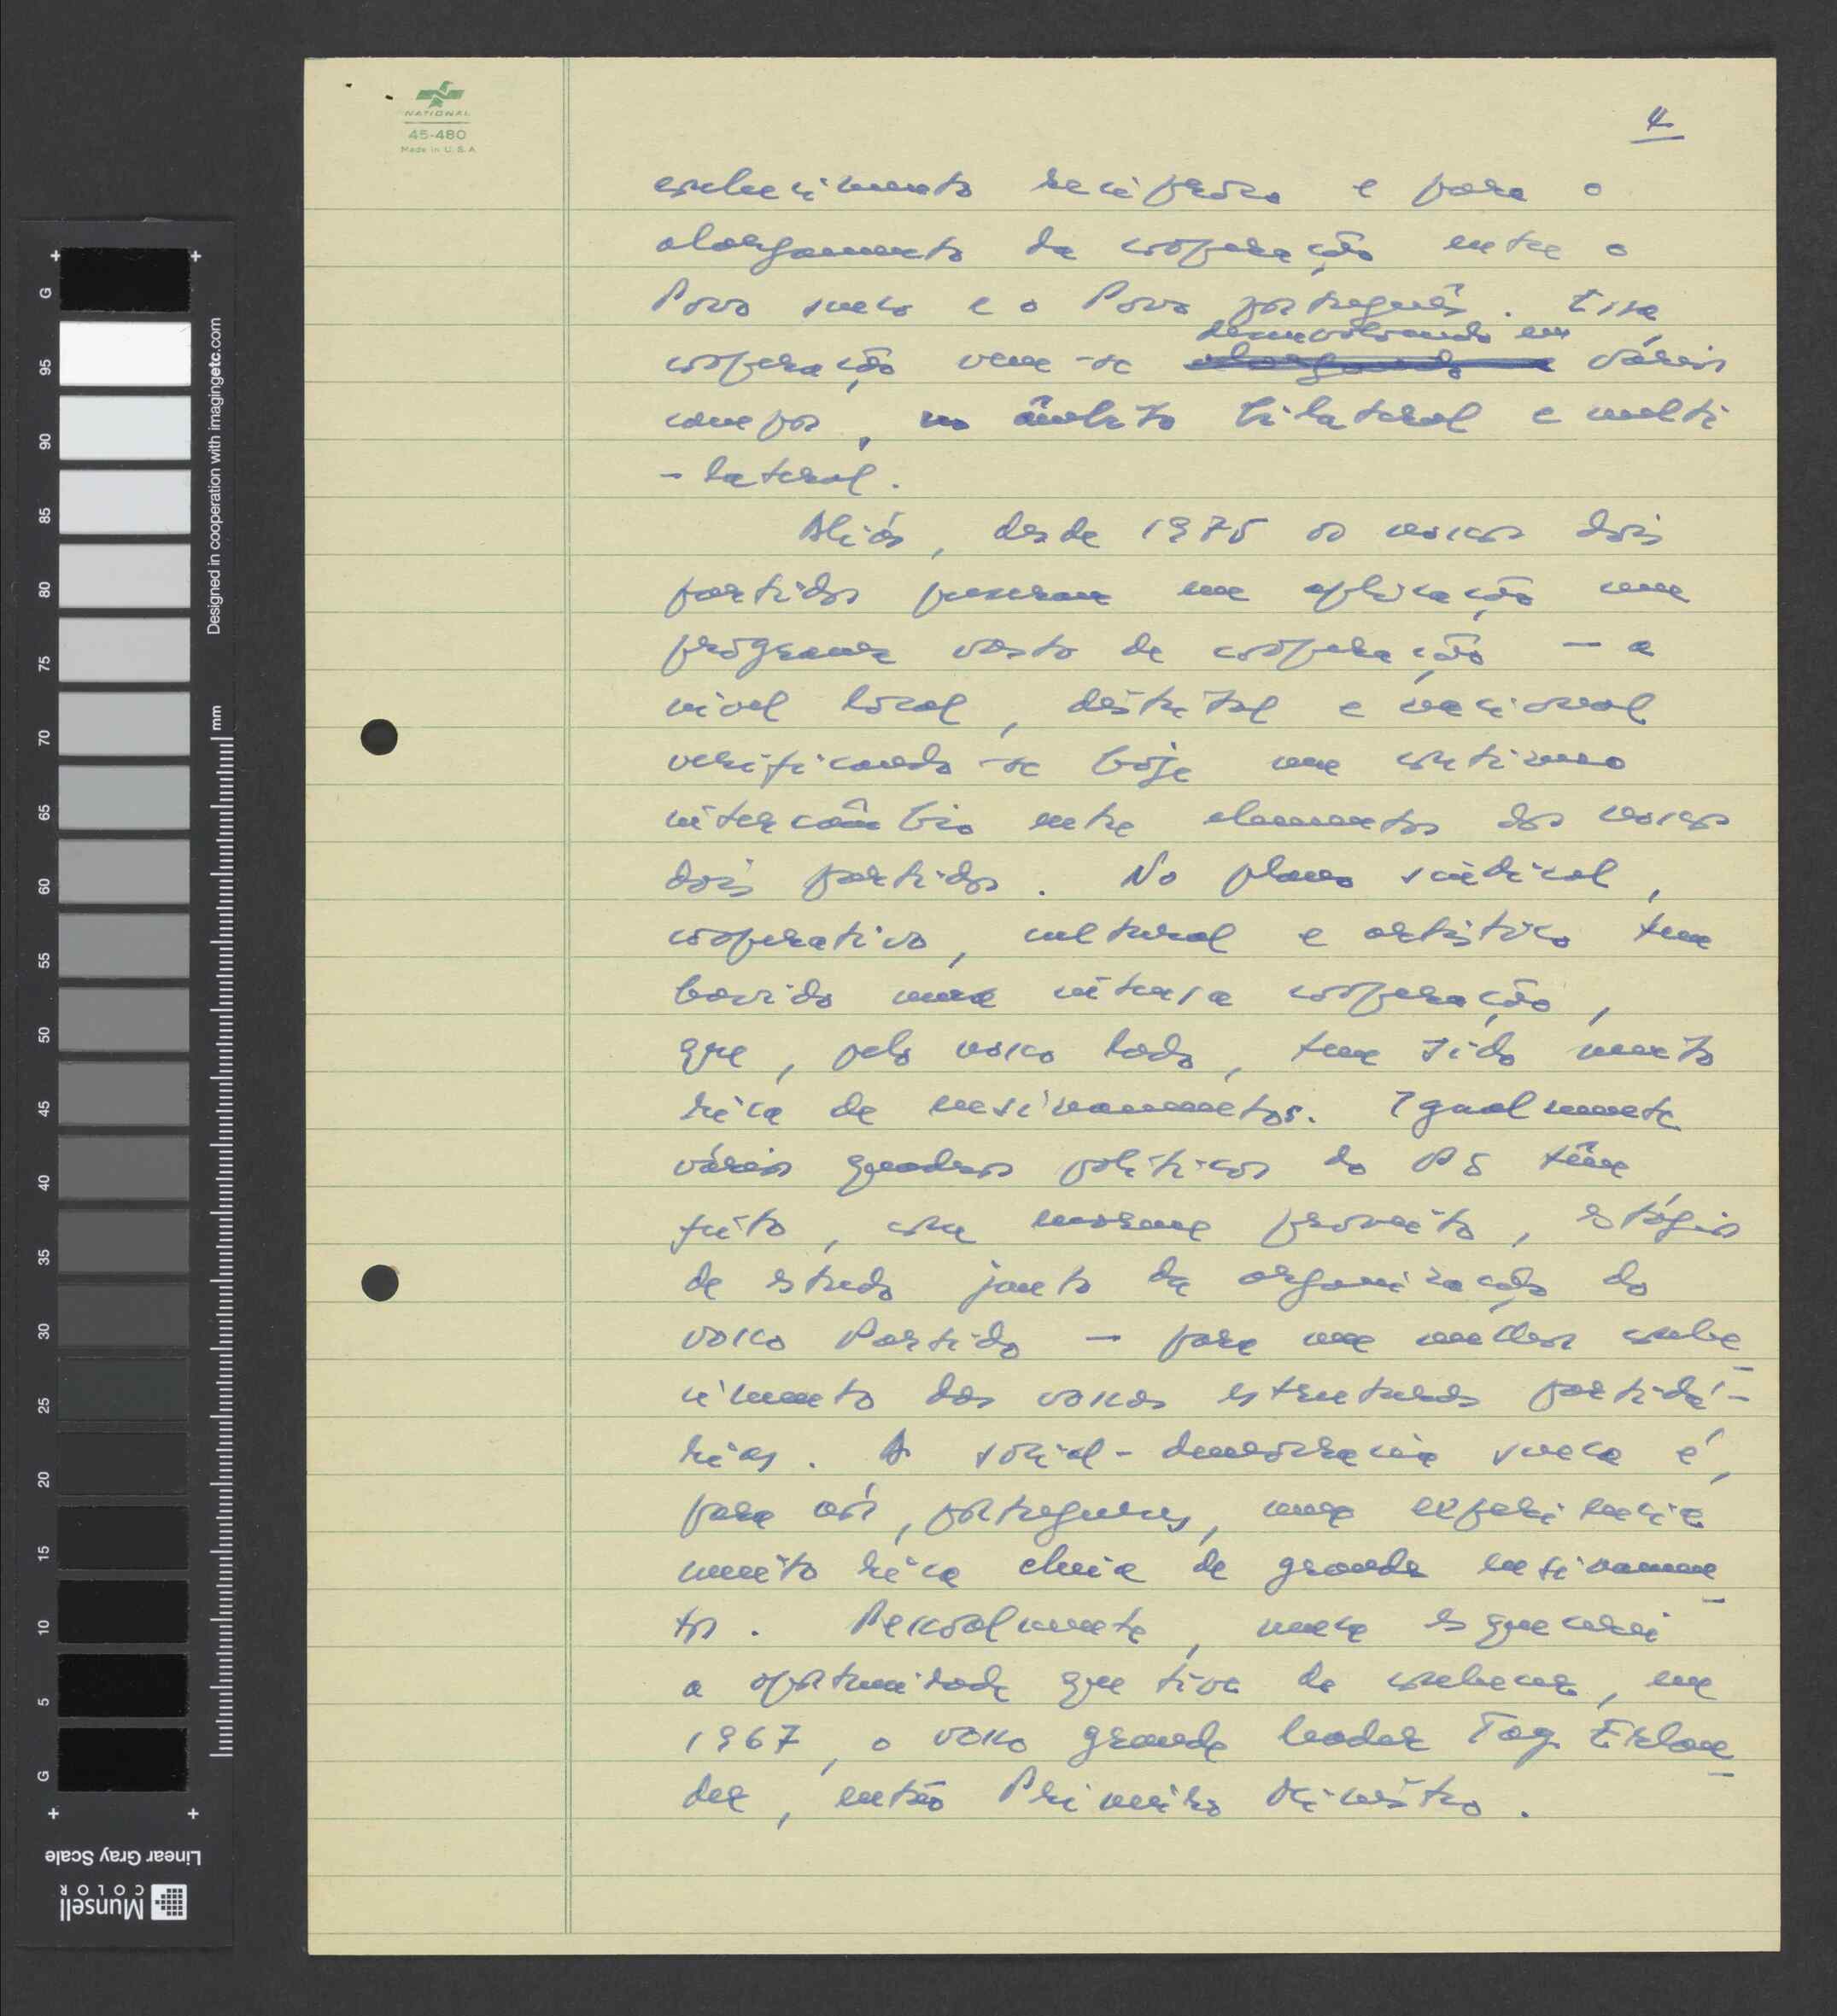 4
conhecimento recíproco e para o
alargamento da cooperação entre o
Povo sueco e o Povo português. Essa
desenvolvendo em
cooperação vem-se alargando a vários
campos, no âmbito bilateral e multi
-lateral.
Aliás, desde 1975 os nossos dois
partidos puseram em aplicação um
programa vasto de cooperação — a
nível local, distrital e nacional
verificando-se hoje um contínuo
intercâmbio entre elementos dos nossos
dois partidos. No plano sindical,
cooperativo, cultural e artístico tem
havido uma intensa cooperação,
que, pelo nosso lado, tem sido muito
rica de ensinamentos. Igualmente
vários quadros políticos do PS têm
feito, com enorme proveito, estágios
de estudo junto da organização do
vosso Partido — para um melhor conhe
cimento das vossas estruturas partidá-
rias. A social-democracia sueca é,
para nós, portugueses, uma experiência
muito rica cheia de grandes ensinamen
tos. Pessoalmente, nunca esquecerei
a oportunidade que tive de conhecer, em
1967, o vosso grande leader Tag Erlan
der, então Primeiro Ministro.
NATIONAL
45-480
Made in U.S.A
Designed in cooperation with imagingetc.com
mm
G
95
90
85
80
75
70
65
60
55
50
45
40
35
30
25
20
15
10
5
G
Linear Gray Scale
Munsell
COLOR